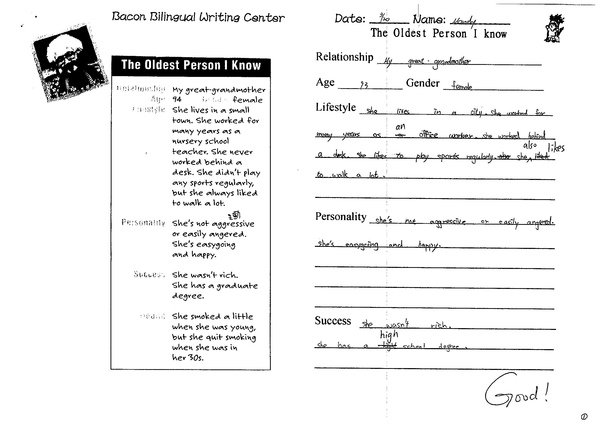 Bacon Bilingual Writing Center
The Oldest Person I Know
My great-grandmother
Age 94 female
Lifestyle She lives in a small
town. She worked for
many years as a
nursery school
teacher. She never
worked behind a
desk. She didn't play
any sports regularly,
but she always liked
to walk a lot.
Personality She's not aggressive
or easily angered.
She's easygoing
and happy.
Success She wasn't rich.
She has a graduate
degree.
She smoked a little
when she was young,
but she quit smoking
when she was in
her 30s.
Date: Name:
The Oldest Person I know
Relationship My great-grandmother
Age 93 Gender female
Lifestyle she lives in a city. She worked for
an
many years as office worker. she worked behind
also likes
a desk. she likes to play sports regularly she
to walk a lot.
Personality she's not aggressive or easily angered.
she's easygoing and happy.
Success she wasn't rich.
high
she has a school degree.
Good!